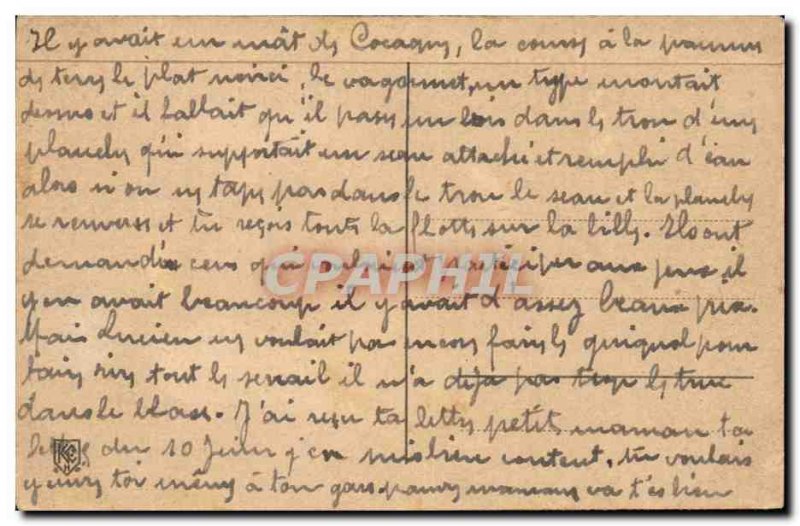 Il y avait un mât de Cocagne, la course à la pomme
de terre le plat noirci, le wagonnet, un type montait
dessus et il fallait qu'il passe un bois dans le trou d'une
planche qui supportait un seau attaché et rempli d'eau
alors si on ne tape pas dans le trou le seau et la planche
se renverse et tu reçois toute la flotte sur la bille. Ils ont
demandé ceux qui voulaient participer aux jeux il
y en avait beaucoup il y avait d'assez beaux prix.
Mais Lucien ne voulait pas encore faire le guignol pour
faire rire tout le serail il n'a déjà pas trop le truc
dans le blase. J'ai reçu ta lettre petite maman ta
lettre du 10 Juin j'en suis bien content, tu voulais
y toi même à ton gars pauvre maman va t'es bien
KE
CPAPHIL